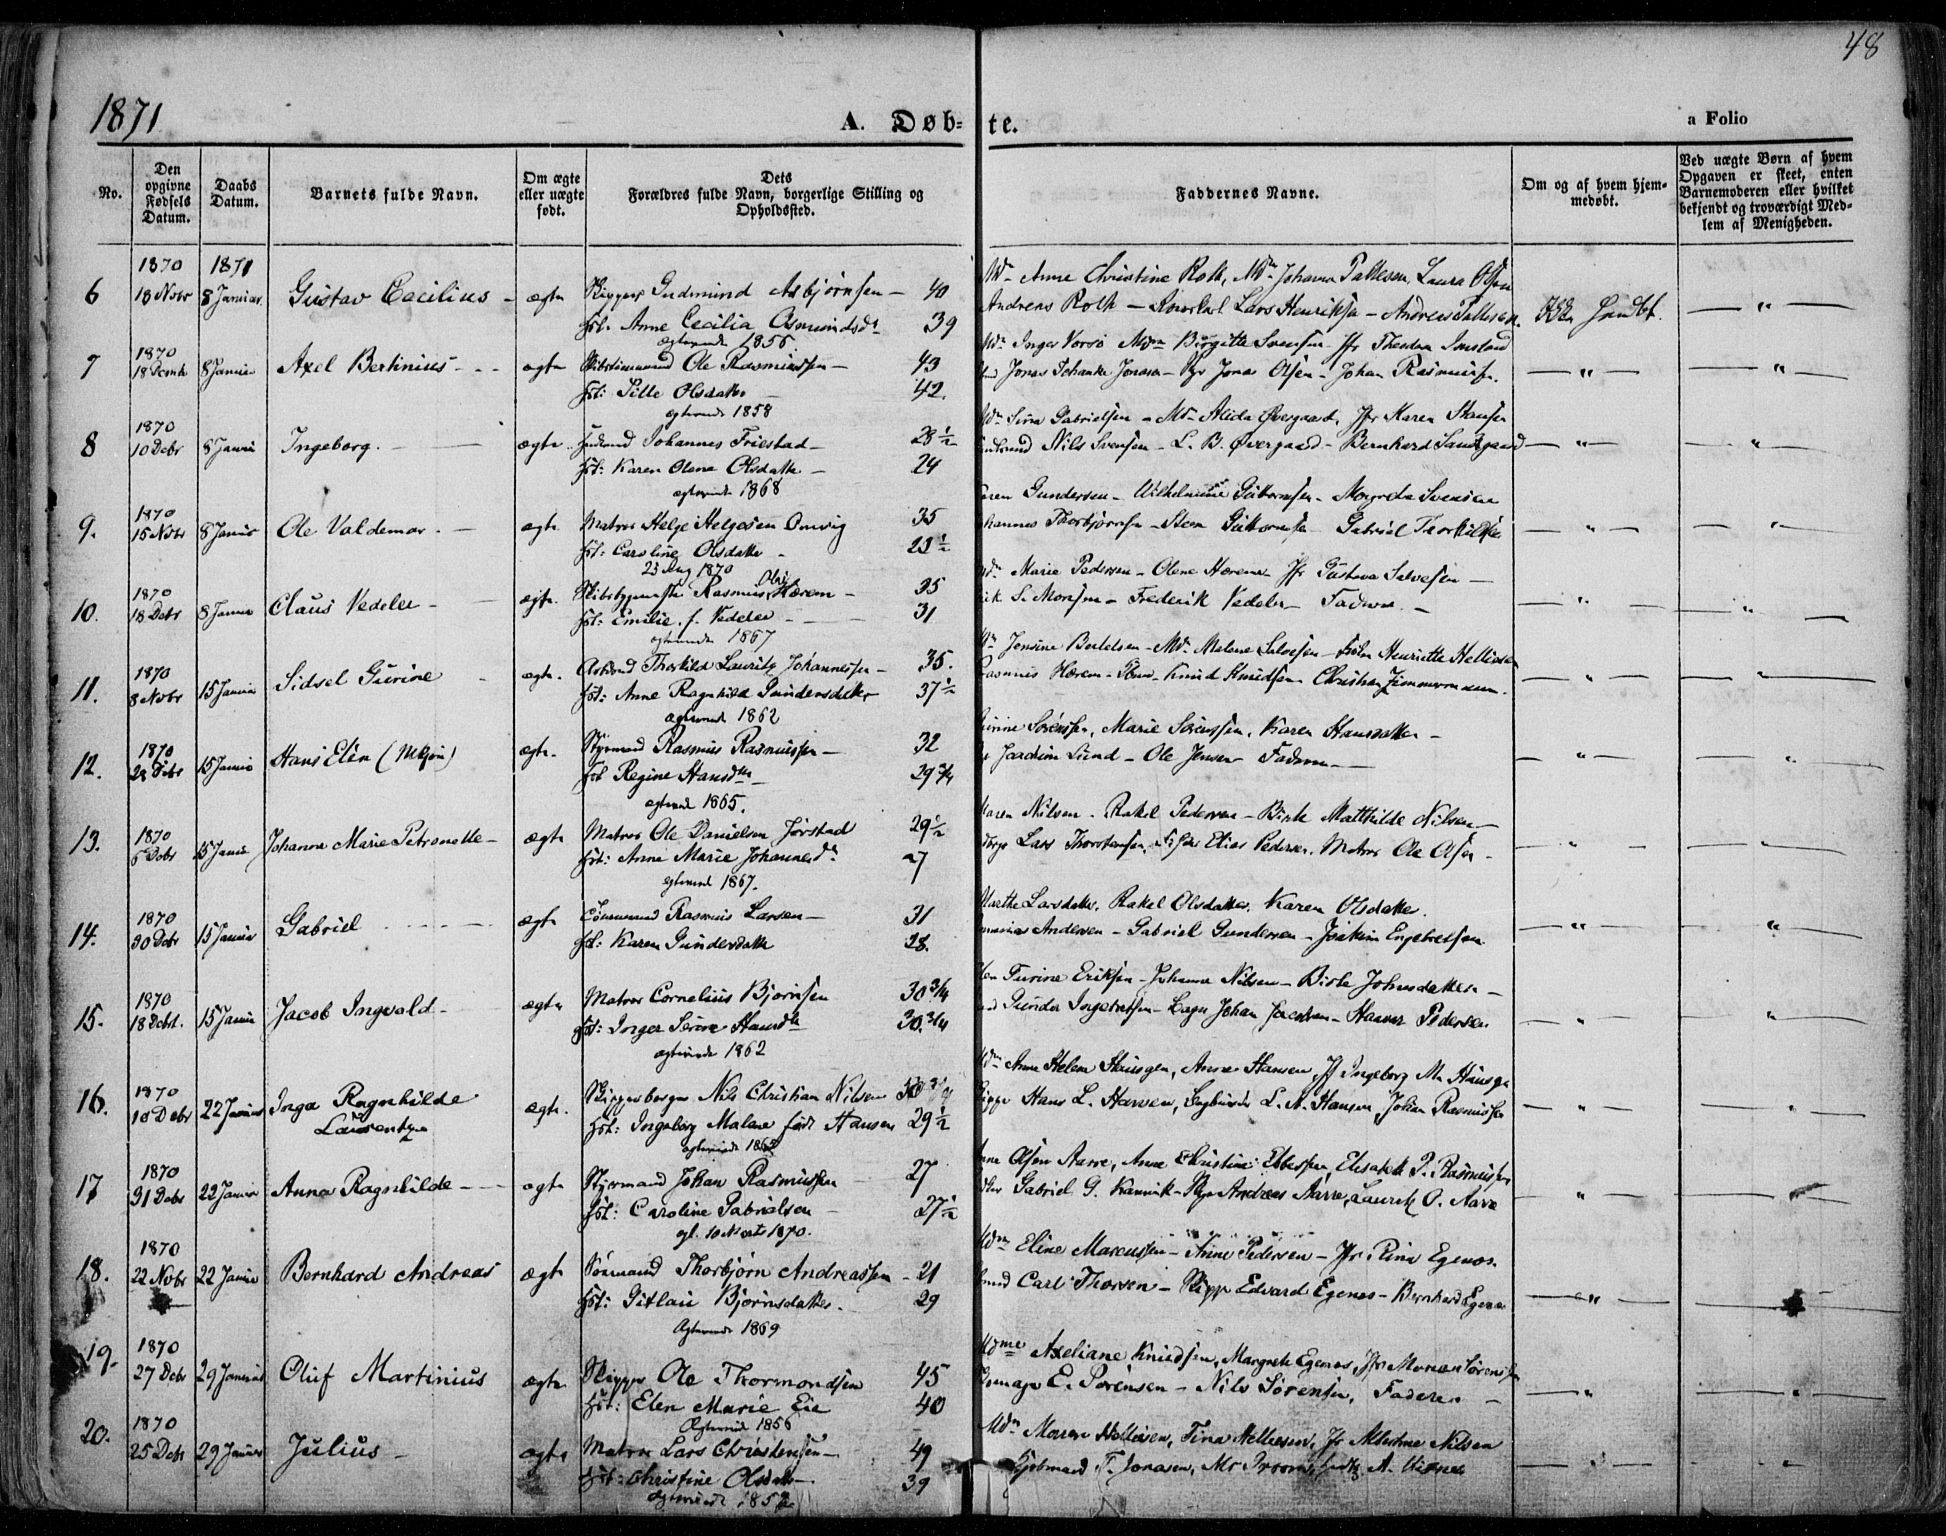 48
1871
A. Døb- te.
a Folio
No.
Den opgivne Fødsels Datum.
Daabs Datum.
Barnets fulde Navn.
Om ægte eller uægte født.
Dets Forældres fulde Navn, borgerlige Stilling og Opholdssted.
Faddernes Navne.
Om og af hvem hjem- medøbt.
Ved uægte Børn af hvem Opgaven er skeet, enten Barnemoderen eller hvilket bekjendt og troværdigt Med- lem af Menigheden.
1870 1871
6 18 Novbr 8 Januar Gustav Cecilius ægte Skipper Gudmund Asbjørnsen 40
Hst. Anne Cecilia Osmundsdr 39
ægteviede 1856
Mdm Anne Christine Roth, Mdm Johanna Pallesen, Laura Olsen
Andreas Roth — Lars Henriksen — Andreas Pallesen
7 1870 18 Decmb 8 Januar Axel Bertinius ægte Skibstømmermand Ole Rasmussen 43
Hst: Sille Olsdatter 42.
ægteviede 1858
Birgitte Svensen
Jonas Schanke Jonasen — Jonas Olsen — Johan Rasmussen
8 1870 10 Debr 8 Januar Ingeborg. ægte Johannes Friestad 28 1/2
Hst: Karen Olene Olsdatter 24
ægteviede 1868
Sina Gabrielsen — Mdm Alida Øvergaard, Jfr Karen Hansen
Nils Svensen — L. B. Øvergaard — Bernhard Sandsgaard
9. 1870 15 Novbr 8 Januar Ole Valdemar ægte Matros Helge Helgesen Omvig 35
Hst: Caroline Olsdatter 23 1/2
23 Aug 1870
Gundersen — Wilhelmine Guttormsen — Svensen
Thorbjørnsen — Steen Guttormsen Gabriel Thorkildsen
10. 1870 18 Debr 8 Januar Claus Vedeler ægte Skibsbygmester Rasmus Olsen Hærem 35
Hst: Emilie f. Vedeler 31
ægteviede 1867
Marie Pedersen — Olene Hærem Jfr Gustava Salvesen
S. Monsen — Frederik Vedeler — Faderen
11. 1870 8 Novbr 15 Januar Sidsel Gurine ægte. Arbmd Thorkild Lauritz Johannessen 35.
Hst: Anne Ragnhild Gundersdatter 37 1/2
ægteviede 1862
Mdm Jensine Bertelsen — Mdm Malene Salvesen — Henriette Helliesen
Rasmus Hærem — Knud Knudsen — Christian Zimmermann
12. 1870 28 Debr 15 Januar Hans Elen (Mkjøn) ægte. Styrmand Rasmus Rasmussen 32
Hst Regine Hansdtr 29 3/4
ægteviede 1865.
Sørensen, Marie Sørensen, Karen Hansdatter
Joachim Lund — Ole Jensen Faderen
13. 1870 6 Debr 15 Januar Johanne Marie Petronelle ægte Matros Ole Danielsen Jørstad 29 1/2
Hst: Anne Marie Johannesdr 27
ægteviede 1867.
Maren Nilsen — Rakel Pedersen — Birte Matthilde Nilsen
Lars Thorstensen, Elias Pedersen, Matros Ole Olsen
14. 1870 30 Debr 15 Januar Gabriel ægte Rasmus Larsen 31
Hst: Karen Gundersdatter 28.
Marthe Larsdatter, Rakel Olsdatter, Karen Olsdatter.
Andersen — Gabriel Gundersen — Joakim Engebretsen
15. 1870 18 Debr. 15 Januar Jacob Ingvald ægte Matros Cornelius Bjørnsen 30 3/4
Hst: Inger Serine Hansdtr 30. 3/4
ægteviede 1862
Turine Eriksen — Johanne Nilsen — Birte Johnsdatter
Gunder Ingebretsen — Johan Jacobsen — Haaver Pedersen
16. 1870 10 Debr 22 Januar Inga Ragnhilde Laurentze ægte. Skipperborger Nils Christian Nilsen
Hst: Ingeborg Malene født Hansen 29 1/2
Mdm Anne Helene Haugen, Anna Hansen, Jf Ingeborg M.
Hans L. Hansen, L. A. Hansen, Johan Rasmussen
17 1870 31 Debr 22 Januar Anna Ragnhilde ægte Styrmand Johan Rasmussen 27
Hst: Caroline Gabrielsen 27 1/2
gl. 10 Marts 1870.
Olsen Aarre, Anne Christine Ebbesen, Elisabeth P. Rasmussen
Gabriel G. Kannik — Andreas Aarre, Laurik O. Aarre
18. 1870 22 Novbr 22 Januar Bernhard Andreas ægte Sømand Thorbjørn Andreassen 21
Hst: Gitlau Bjørnsdatter 29
Ægteviede 1869
Mdm Eline Marcussen — Anne Pedersen — Jfr Rina Egenes
Carl Thorsen — Skipp Edvard Egenes — Bernhard Egenes
19. 1870 27 Debr 29 Januar Oluf Martinius ægte Skipper Ole Thormondsen 45
Hst: Elen Marie Eie 40
Ægteviede 1856
Mdme Axeliane Knudsen, Margrete Egenes, Jfr Maren Sørensen
E. Sørensen — Nils Sørensen, Faderen
20. 1870 25 Debr 29 Januar Julius ægte Matros Lars Christensen 49
Hst: Christine Olsdatter 39
Mdm Maren Helliesen, Tina Helliesen, Jfr Nilsen
Kjøbmand T. Jonasen